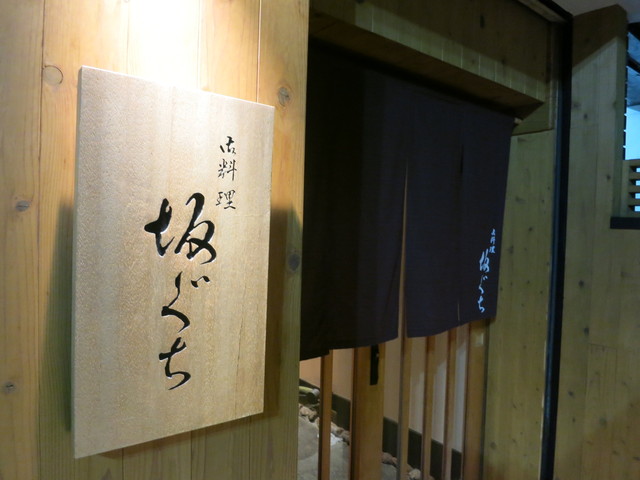 御料理
坂ぐち
御料理
坂ぐち